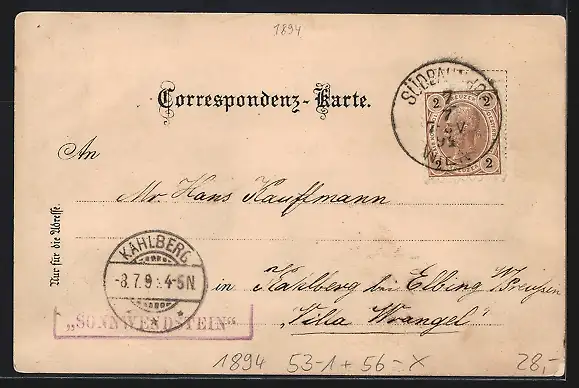 1894
Correspondenz-Karte.
SÜDBAHNHOF
7
7
94
WIEN
2 KREUZER 2
2 2
An
Mr. Hans Kauffmann
Nur für die Adresse.
KAHLBERG
-8.7.9 :4-5N
* *
in Kahlberg bei Elbing W/Preußen
„Villa Wrangel"
„SONNWENDSTEIN"
1894 53-1+56-X 28,-